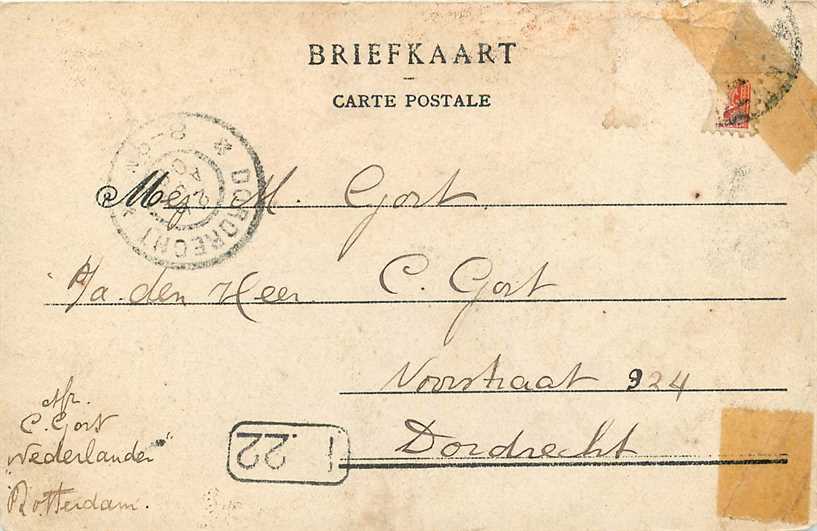 BRIEFKAART
CARTE POSTALE
DORDRECHT
Mej M. Gort.
P/a. den Heer C. Gort
Voorstraat 324
Dordrecht
Afz.
C. Gort
"Nederlander"
Rotterdam.
1.22